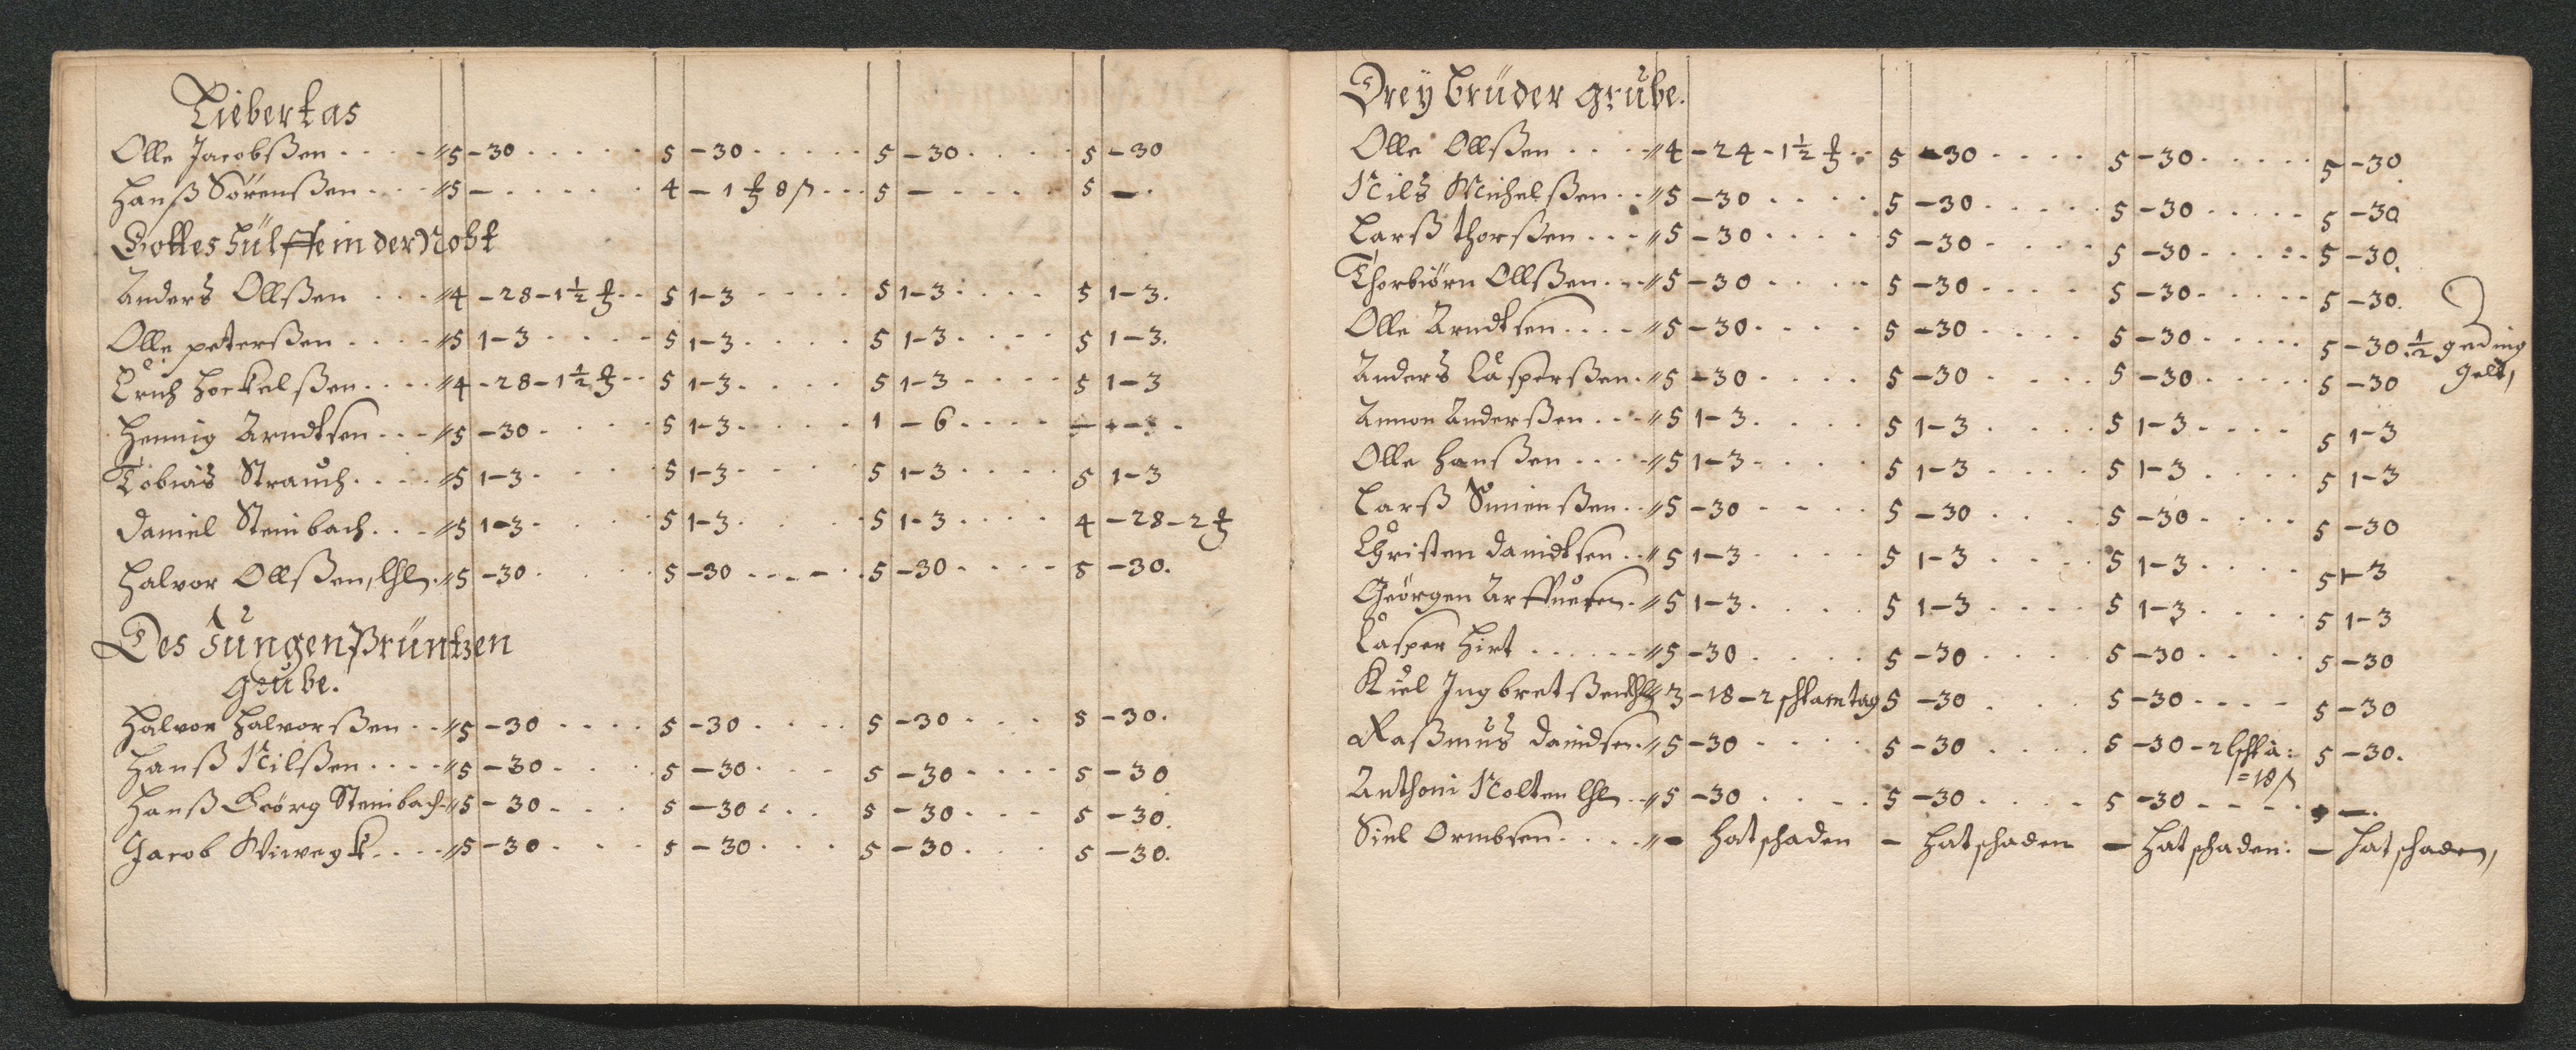 Liebertas
Olle Jacobßen . . . . 5 - 30 . . . . . 5 - 30 . . . . . 5 - 30 . . . . 5 - 30
Hanß Sörenßen . . . 5 - . . . . . . 4 - 1 8 ß . . . 5 - . . . . . 5 - .
Gottes hülffe in der Noht
Anders Ollßen . . . 4 - 28 - 1½ . . 5 1 - 3 . . . . 5 1 - 3 . . . . 5 1 - 3.
Olle peterßen . . . . 5 1 - 3 . . . . 5 1 - 3 . . . . 5 1 - 3 . . . . 5 1 - 3.
Erich Hockelßen . . . . 4 - 28 - 1½ . . 5 1 - 3 . . . . 5 1 - 3 . . . . 5 1 - 3
Hennig Arndtsen . . . 5 - 30 . . . . 5 1 - 3 . . . . . 1 - 6 . . . . - - - .
Tobias Strauch . . . . 5 1 - 3 . . . . 5 1 - 3 . . . . 5 1 - 3 . . . . 5 1 - 3
Daniel Steinbach . . . 5 1 - 3 . . . . 5 1 - 3 . . . . 5 1 - 3 . . . . 4 - 28 - 2
Halvor Ollßen, lhl. 5 - 30 . . . . 5 - 30 . . . - . . 5 - 30 . . . . 5 - 30.
Des Jungen Prüntzen
grube.
Halvor Halvorßen . . 5 - 30 . . . . 5 - 30 . . . . 5 - 30 . . . 5 - 30.
Hanß Nilßen . . . . 5 - 30 . . . . 5 - 30 . . . 5 - 30 . . . . 5 - 30
Hanß Georg Steinbach 5 - 30 . . . 5 - 30 . . . 5 - 30 . . . 5 - 30.
Jacob Wiwegk . . . . 5 - 30 . . . . 5 - 30 . . . 5 - 30 . . . 5 - 30.
Drey brüder grube.
Olle Ollßen . . . . 4 - 24 - 1½ . . 5 - 30 . . . . 5 - 30 . . . . . 5 - 30.
Nils Michelßen . . 5 - 30 . . . . 5 - 30 . . . . . 5 - 30 . . . . . 5 - 30
Larß thorßen . . . 5 - 30 . . . . 5 - 30 . . . . 5 - 30 . . . . . 5 - 30.
Thorbiörn Ollßen . . . 5 - 30 . . . . 5 - 30 . . . . 5 - 30 . . . . . 5 - 30.
Olle Arndtsen . . . . 5 - 30 . . . . 5 - 30 . . . . 5 - 30 . . . . . 5 - 30. ½ geding
gelt,
Anders Casperßen . 5 - 30 . . . . 5 - 30 . . . . 5 - 30 . . . . . 5 - 30
Amon Anderßen . . . 5 1 - 3 . . . . 5 1 - 3 . . . . 5 1 - 3 . . . . 5 1 - 3
Olle Hanßen . . . . 5 1 - 3 . . . . 5 1 - 3 . . . . 5 1 - 3 . . . . 5 1 - 3
Larß Simenßen . . 5 - 30 . . . . 5 - 30 . . . 5 - 30 . . . . 5 - 30
Christen Davidtsen . . 5 1 - 3 . . . . 5 1 - 3 . . . . 5 1 - 3 . . . . 5 1 - 3
Georgen . 5 1 - 3 . . . . 5 1 - 3 . . . . 5 1 - 3 . . . . 5 1 - 3
Casper Hirt . . . . . . 5 - 30 . . . . 5 - 30 . . . . 5 - 30 . . . . 5 - 30
Kiel Ingbretßen lhl 3 - 18 - 2 schkamtag 5 - 30 . . . . 5 - 30 . . . . 5 - 30
Raßmus Davidsen . 5 - 30 . . . . 5 - 30 . . . . 5 - 30 - 2 : 5 - 30.
= 18 ß
Anthoni Nolten lhl . . 5 - 30 . . . . 5 - 30 . . . . 5 - 30 . . . . - .
Siel Ormbsen . . . . - Hat schaden - Hat schaden - Hat schaden: - Hat schaden,